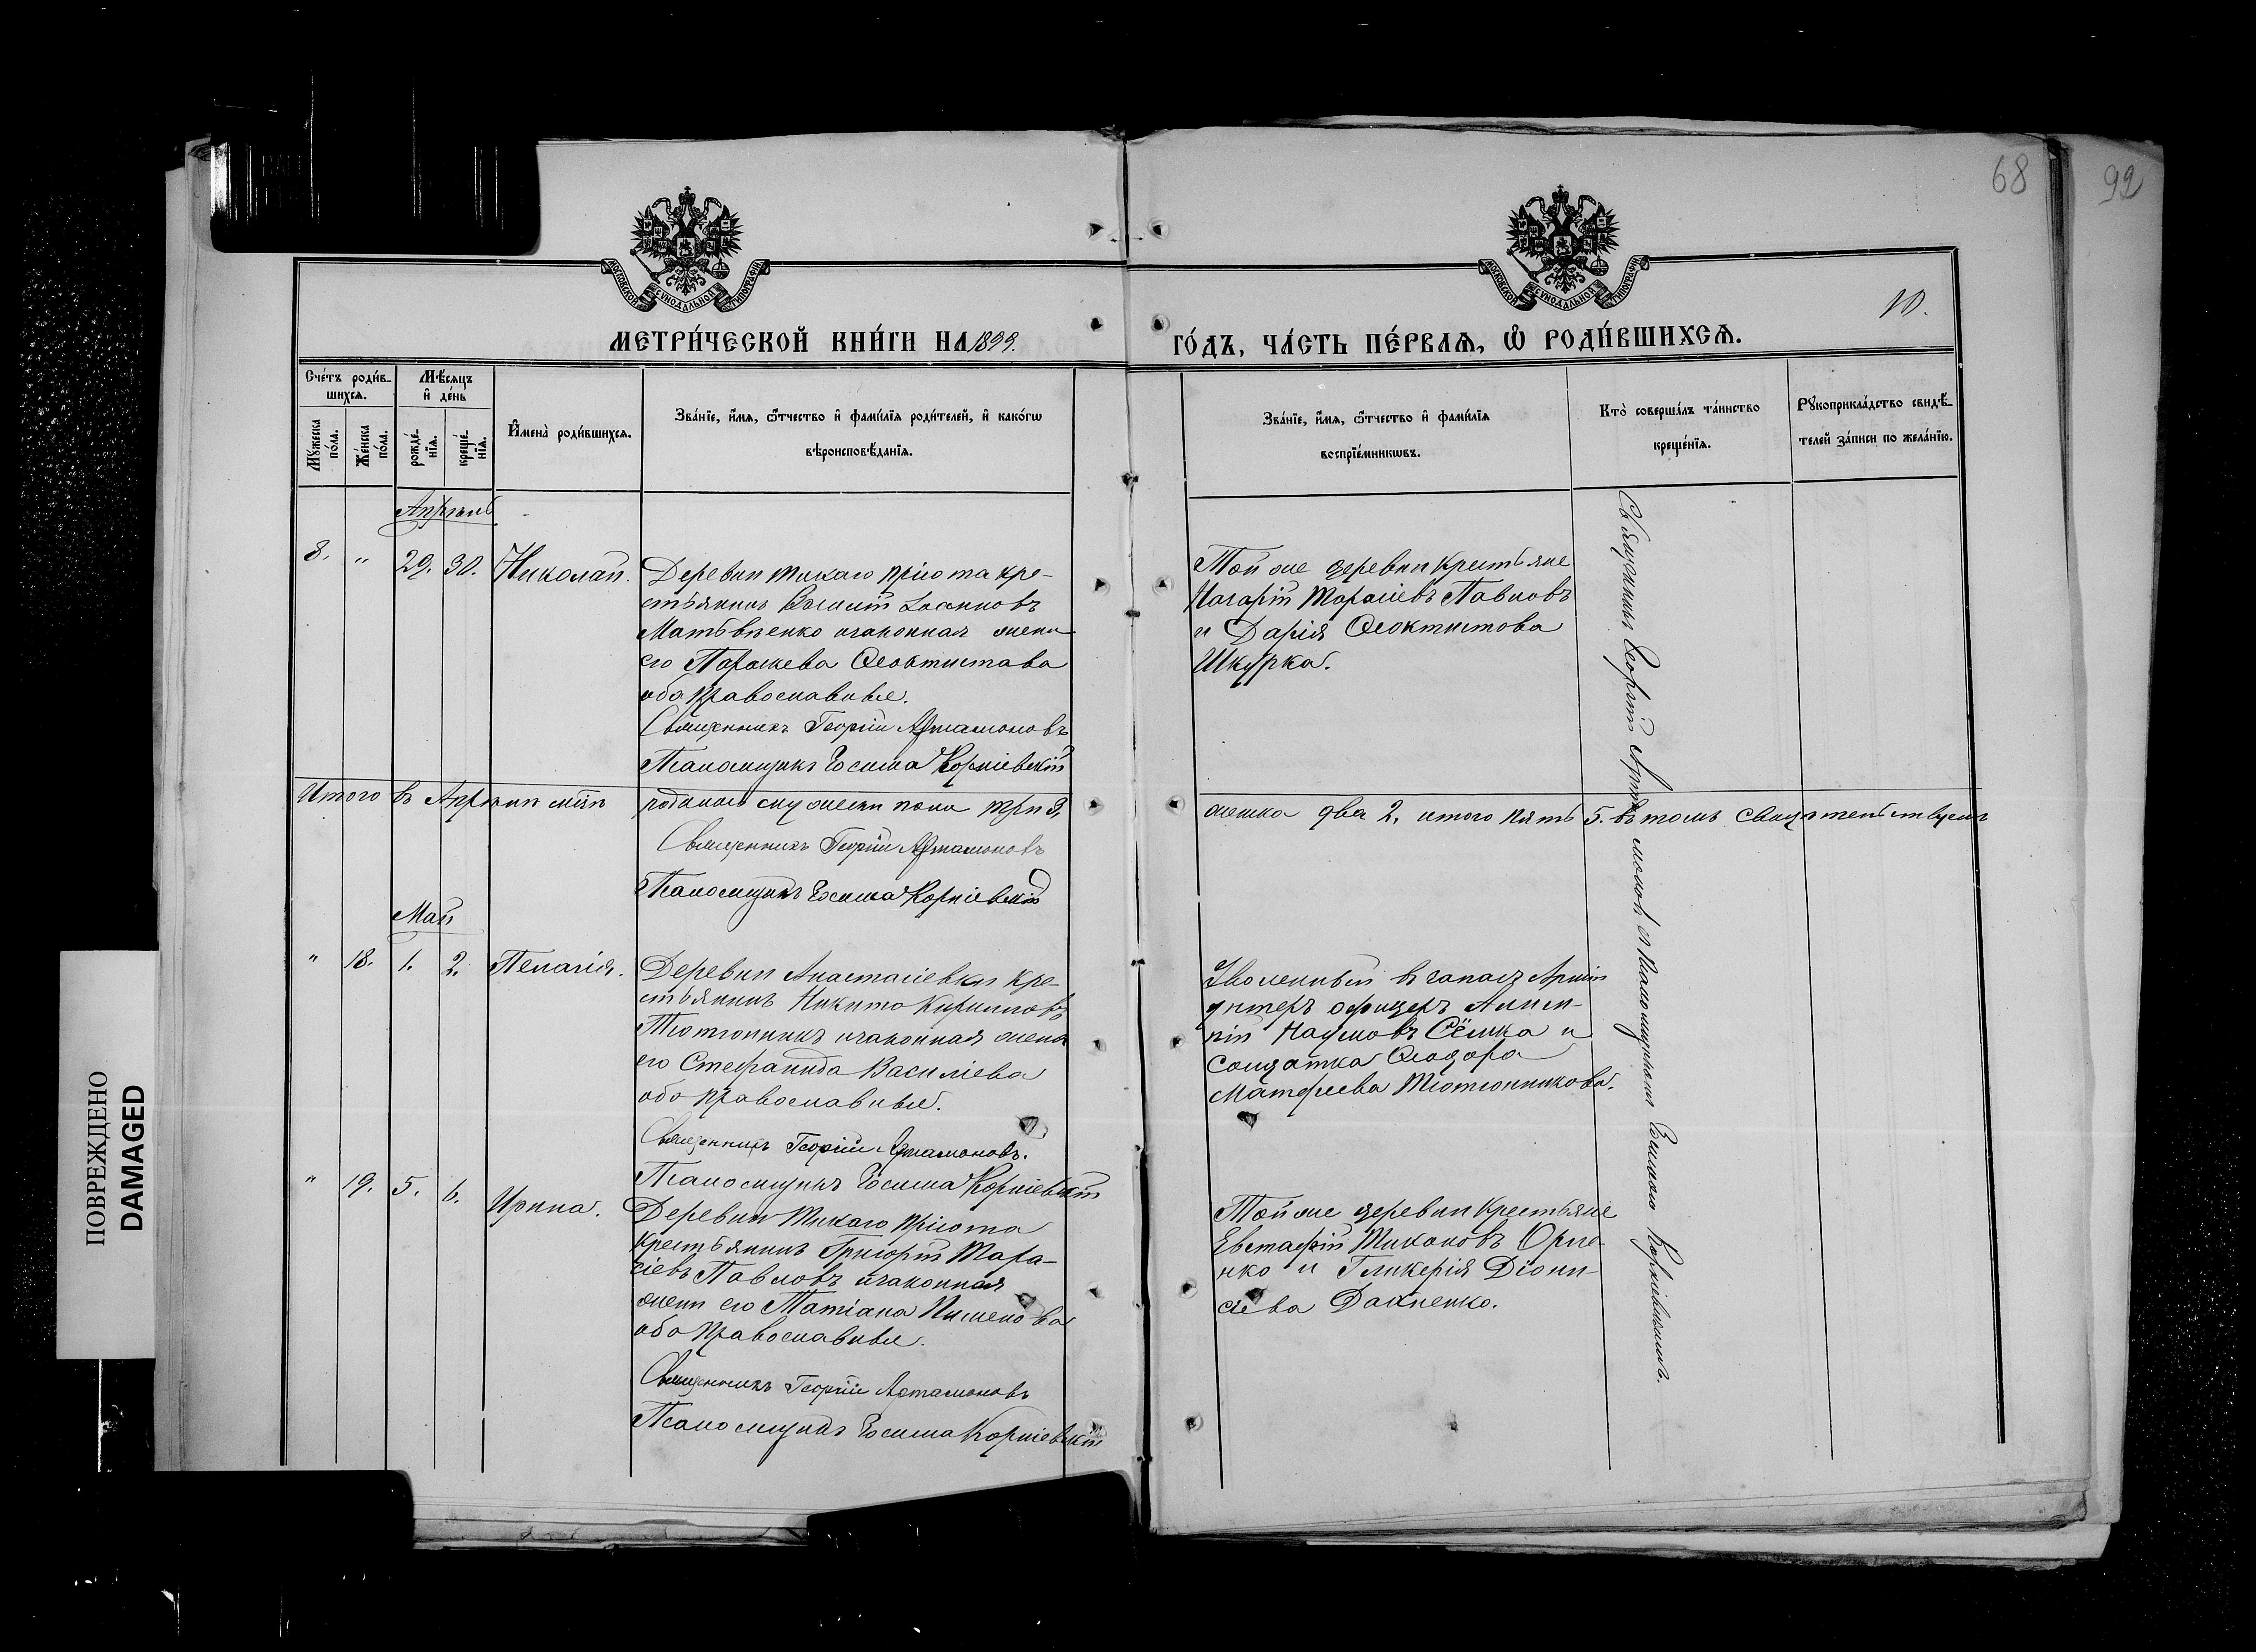 68
92
10.
МОСКОВСКОЙ СѴНОДАЛЬНОЙ ТИПОГРАФІИ
МОСКОВСКОЙ СѴНОДАЛЬНОЙ ТИПОГРАФІИ
МЕТРИ́ЧЕСКОЙ КНИ́ГИ НА 1899.
ГО́ДЪ, ЧА́СТЬ ПЕ́РВАЯ, Ѡ РОДИ́ВШИХСЯ.
Сче́тъ роди́в-
шихся.
Мꙋжеска по́ла.
Же́нска по́ла.
Мѣ́сяцъ и де́нь
рожде́-
нїя.
креще́-
нїя.
И҆мена̀ роди́вшихся.
Зва́нїе, и҆́мя, ѻ҆́тчество и҆ фами́лїя роди́телей, и҆ како́гѡ
вѣроисповѣ́данїя.
Зва́нїе, и҆́мя, ѻ҆́тчество и҆ фами́лїя
воспрїе́мникѡвъ.
Кто̀ соверша́лъ та́инство
креще́нїя.
Рꙋкоприкла́дство свидѣ́-
телей за́писи по жела́нїю.
Апрѣль
8. " 29. 30. Николай.
Деревни Тихаго Пріюта кре-
стьянинъ
Матвѣенко и законная жена
его Параскева Ѳеоктистова
оба православные.
Священникъ Георгій Артамоновъ
Псаломщикъ Зосима Корніевскій
Той же деревни крестьяне
Назарій Тарасіевъ Павловъ
и Дарія Ѳеоктистова
Шкурка.
Священникъ Георгій Артамоновъ съ псаломщикомъ Зосимою Корніевскимъ.
Итого въ Апрѣлѣ м-цѣ родилось мужеска пола три 3, женска два 2, итого пять 5. въ томъ свидѣтельствуемъ
Священникъ Георгій Артамоновъ
Псаломщикъ Зосима Корніевскій
Май
" 18. 1. 2. Пелагія.
Деревни Анастасіевки кре-
стьянинъ Никита Кирилловъ
Тютюнникъ и законная жена
его Стефанида Василіева
оба православные.
Священникъ Георгій Артамоновъ.
Псаломщикъ Зосима Корніевскій
Уволенный въ запасъ Арміи
унтеръ офицеръ Алим-
пій Наумовъ Сёмка и
солдатка Ѳеодора
Матфеева Тютюнникова.
" 19. 5. 6. Ирина.
Деревни Тихаго Пріюта
крестьянинъ Григорій Тара-
сіевъ Павловъ и законная
жена его Татіана Пименова
оба православные.
Священникъ Георгій Артамоновъ
Псаломщикъ Зосима Корніевскій
Той же деревни крестьяне
Евстафій Тихоновъ
и Гликерія Діони-
сіева Дахненко.
ПОВРЕЖДЕНО
DAMAGED